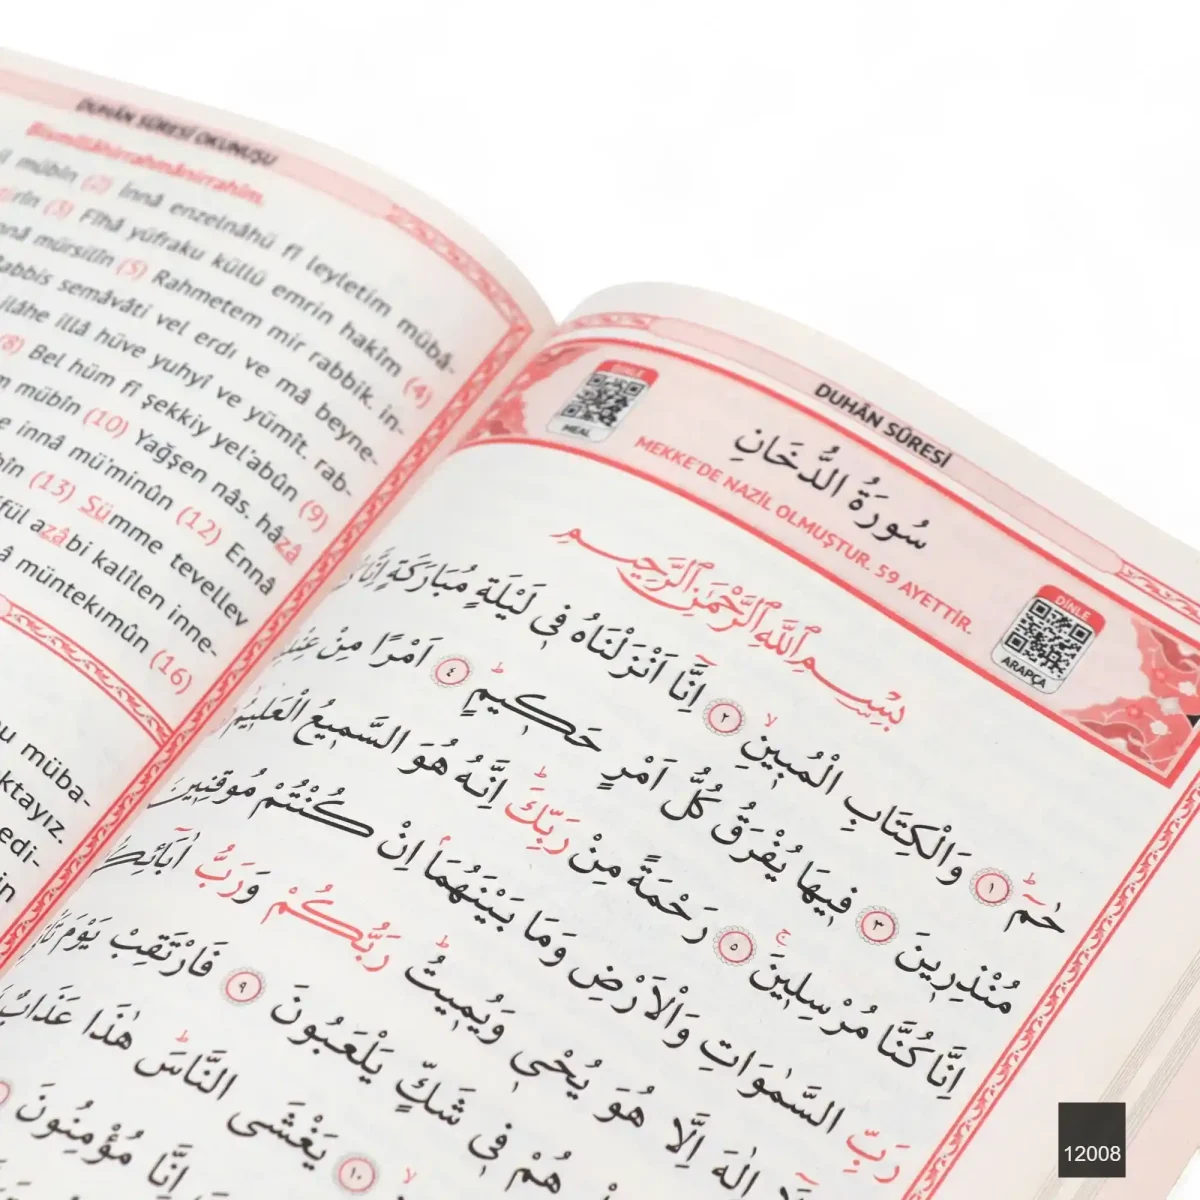 DUHÂN SÛRESİ OKUNUŞU
Bismillâhirrahmânirrahîm.
mübîn (2) İnnâ enzelnâhü fî leyletim mübâ-
(3) Fîhâ yüfraku küllü emrin hakîm (4)
mürsilîn (5) Rahmetem mir rabbik. in-
semâvâti vel erdı ve mâ beyne-
ilâhe illâ hüve yuhyî ve yümît. rab-
(8) Bel hüm fî şekkiy yel'abûn (9)
mübîn (10) Yağşen nâs. hâzâ
innâ mü'minûn (12) Ennâ
(13) Sümme tevellev
azâbi kalîlen inne-
müntekımûn (16)
müba-
DUHÂN SÛRESİ
DİNLE
MEAL
سُورَةُ الدُّخَانِ
MEKKE'DE NAZİL OLMUŞTUR. 59 AYETTİR.
DİNLE
ARAPÇA
بِسْمِ اللّٰهِ الرَّحْمٰنِ الرَّحِيمِ
حٰمٓ ١ وَالْكِتَابِ الْمُبِينِ ٢ اِنَّٓا اَنْزَلْنَاهُ فِى لَيْلَةٍ مُبَارَكَةٍ اِنَّا
مُنْذِرِينَ ٣ فِيهَا يُفْرَقُ كُلُّ اَمْرٍ حَكِيمٍ ٤ اَمْرًا مِنْ
اِنَّا كُنَّا مُرْسِلِينَ ٥ رَحْمَةً مِنْ رَبِّكَ اِنَّهُ هُوَ السَّمِيعُ الْعَلِيمُ
رَبِّ السَّمٰوَاتِ وَالْاَرْضِ وَمَا بَيْنَهُمَا اِنْ كُنْتُمْ مُوقِنِينَ
اِلٰهَ اِلَّا هُوَ يُحْيِى وَيُمِيتُ رَبُّكُمْ وَرَبُّ
هُمْ فِى شَكٍّ يَلْعَبُونَ ٩ فَارْتَقِبْ يَوْمَ
١٠ يَغْشَى النَّاسَ هٰذَا عَذَابٌ
اِنَّا مُؤْمِنُونَ
12008